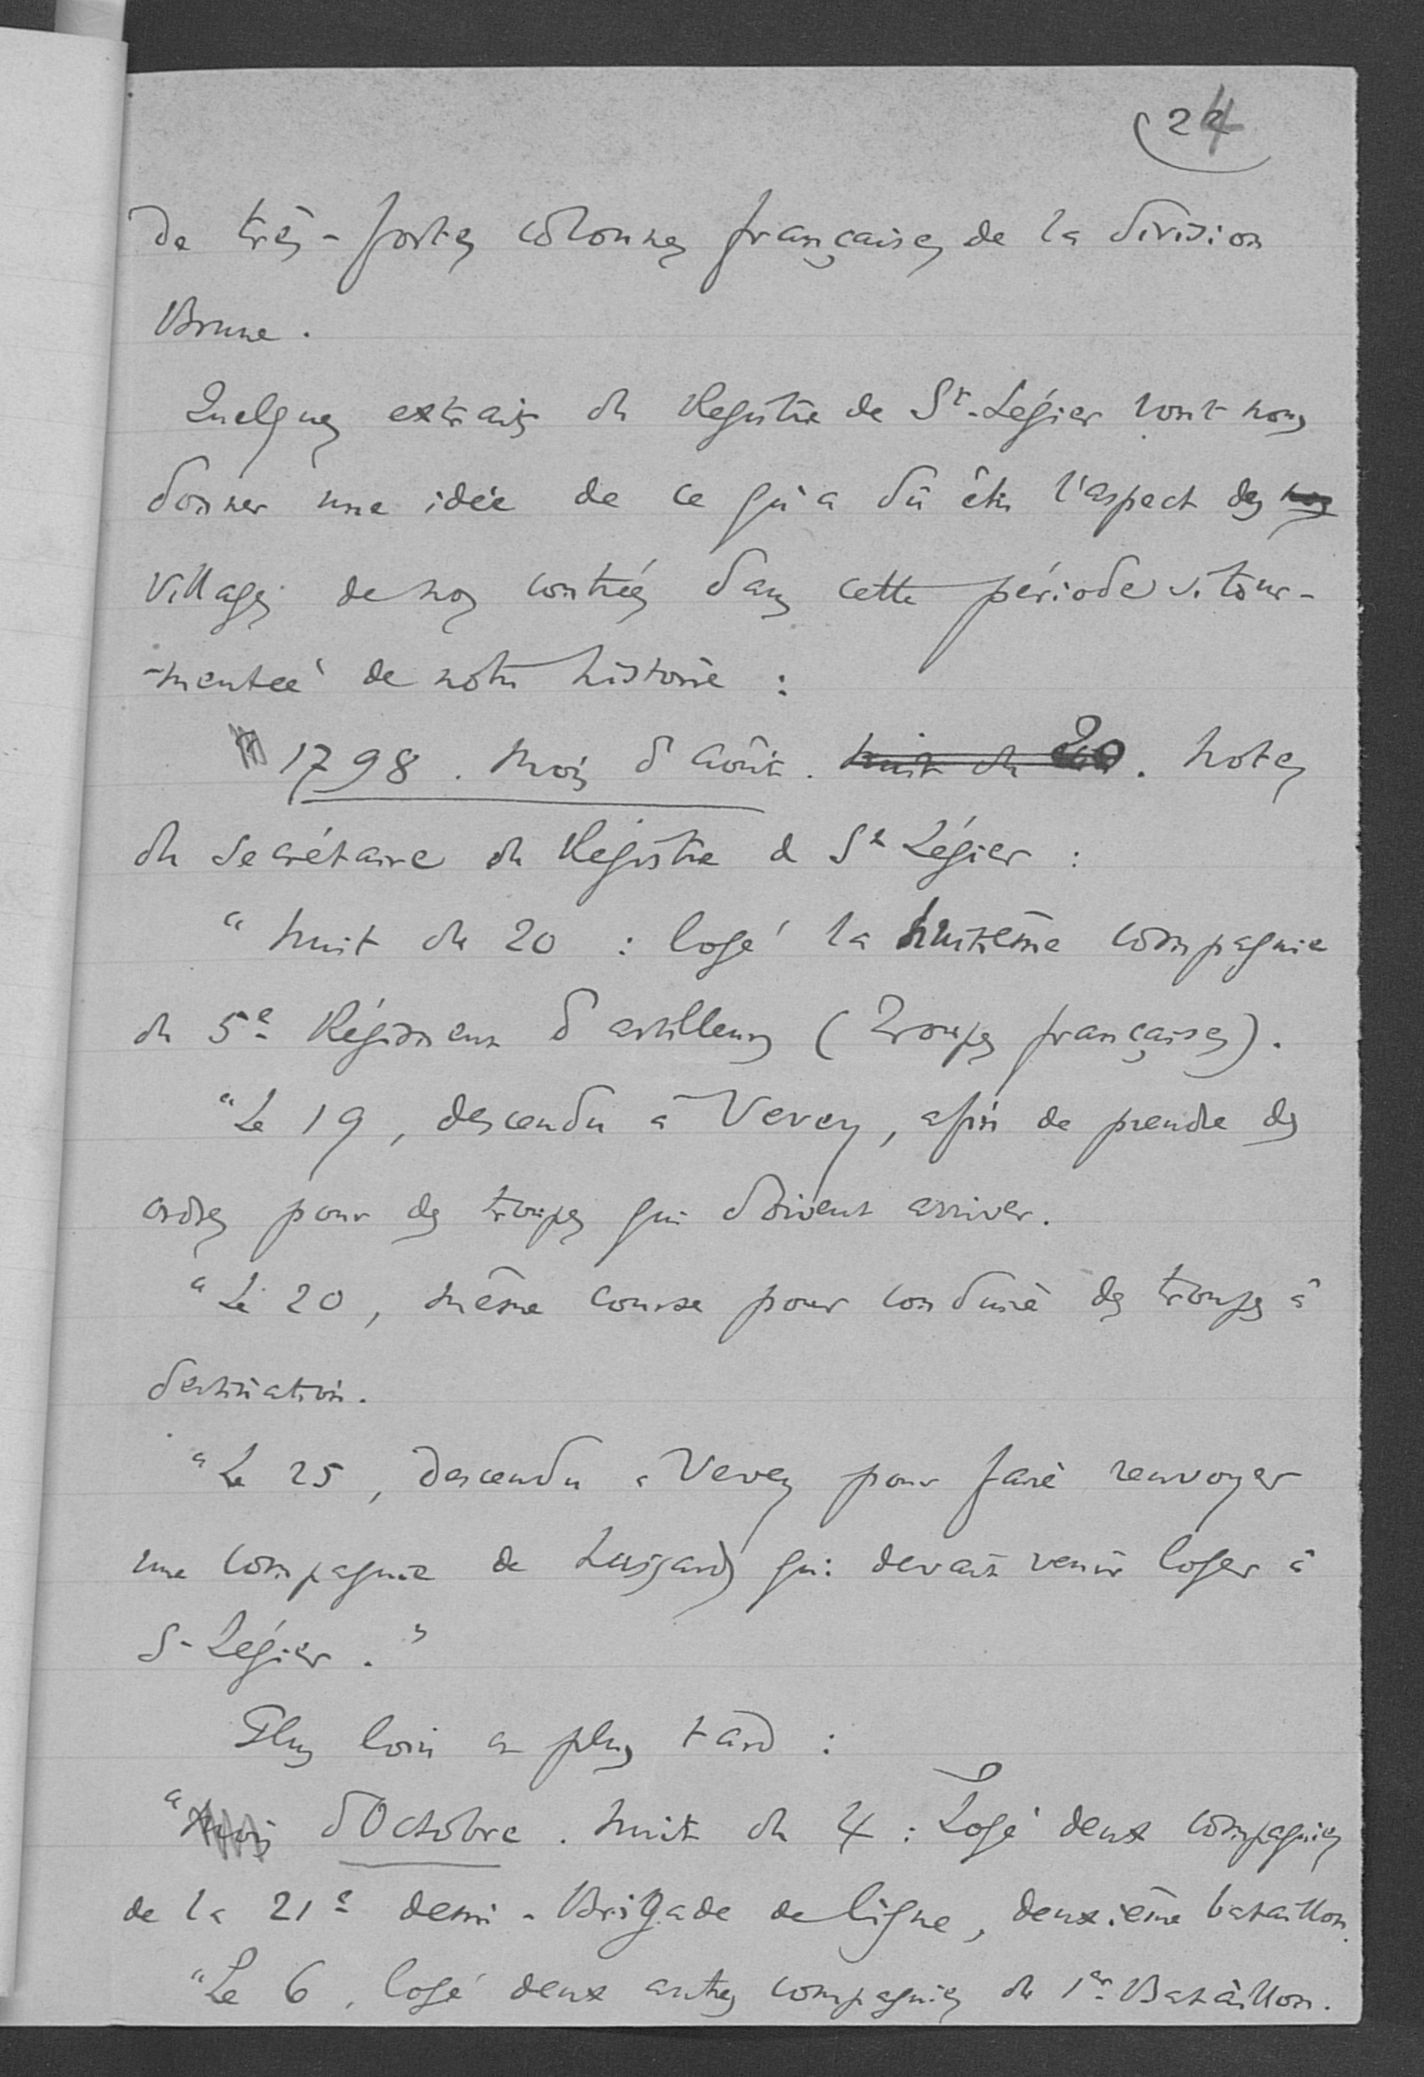 24
de très-fortes colonnes françaises de la division
Brune.
Quelques extraits du Registre de St-Légier vont nous
donner une idée de ce qu'a dû être l'aspect des nos
villages de nos contrées dans cette période si tour-
-mentée de notre histoire :
1798. Mois d'août. Nuit du 20. Notes
du secrétaire du Registre de St Légier :
"Nuit du 20 : logé la huitième compagnie
du 5e Régiment d'artilleurs (Troupes françaises).
"Le 19, descendu à Vevey, afin de prendre des
ordres pour des troupes qui doivent arriver.
"Le 20, même course pour conduire des troupes à
destination.
"Le 25, descendu à Vevey pour faire renvoyer
une compagnie de hussards qui devait venir loger à
S-Légier."
Plus loin et plus tard :
"Mois d'Octobre. Nuit du 4 : Logé deux compagnies
de la 21e demi-Brigade de ligne, deuxième bataillon.
"Le 6, logé deux autres compagnies du 1er Bataillon.